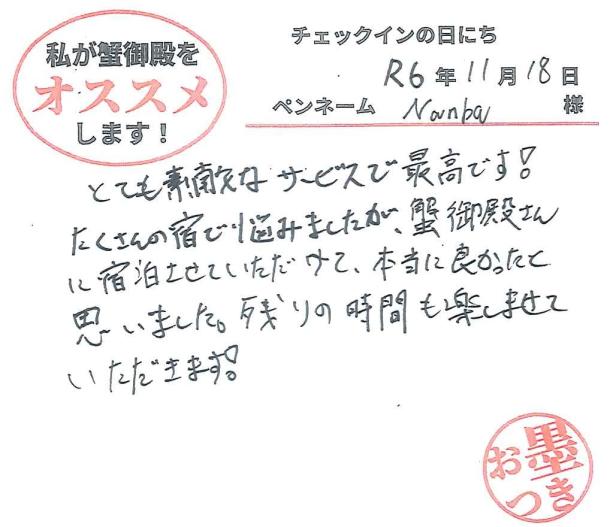 私が蟹御殿を
オススメ
します！
チェックインの日にち
R6年11月18日
ペンネーム Nanba 様
とても素敵なサービスで最高です!
たくさんの宿で悩みましたが、蟹御殿さん
に宿泊させていただけて、本当に良かったと
思いました。残りの時間も楽しませて
いただきます!
お墨
つき